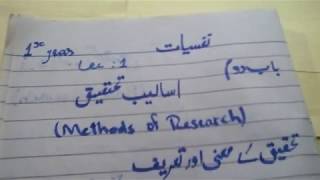 1st year نفسیات
Lec: 1 باب دوم
اسالیب تحقیق
(Methods of Research)
تحقیق کے معنی اور تعریف